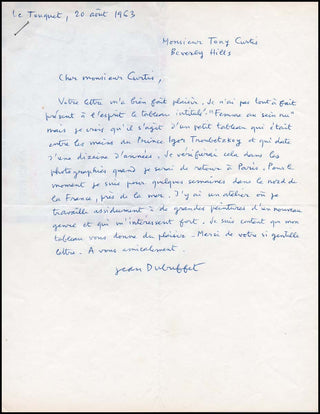 Le Touquet, 20 août 1963
Monsieur Tony Curtis
Beverly Hills
Cher monsieur Curtis,
Votre lettre m'a bien fait plaisir. Je n'ai pas tout à fait
présent à l'esprit le tableau intitulé "Femme au sein nu"
mais je crois qu'il s'agit d'un petit tableau qui était
entre les mains du Prince Igor Troubetzkoy et qui date
d'une dizaine d'années. Je vérifierai cela dans les
photographies quand je serai de retour à Paris. Pour le
moment je suis pour quelques semaines dans le nord de
la France, près de la mer. J'y ai un atelier où je
travaille assidument à de grandes peintures d'un nouveau
genre et qui m'intéressent fort. Je suis content que mon
tableau vous donne du plaisir. Merci de votre si gentille
lettre. A vous amicalement.
Jean Dubuffet